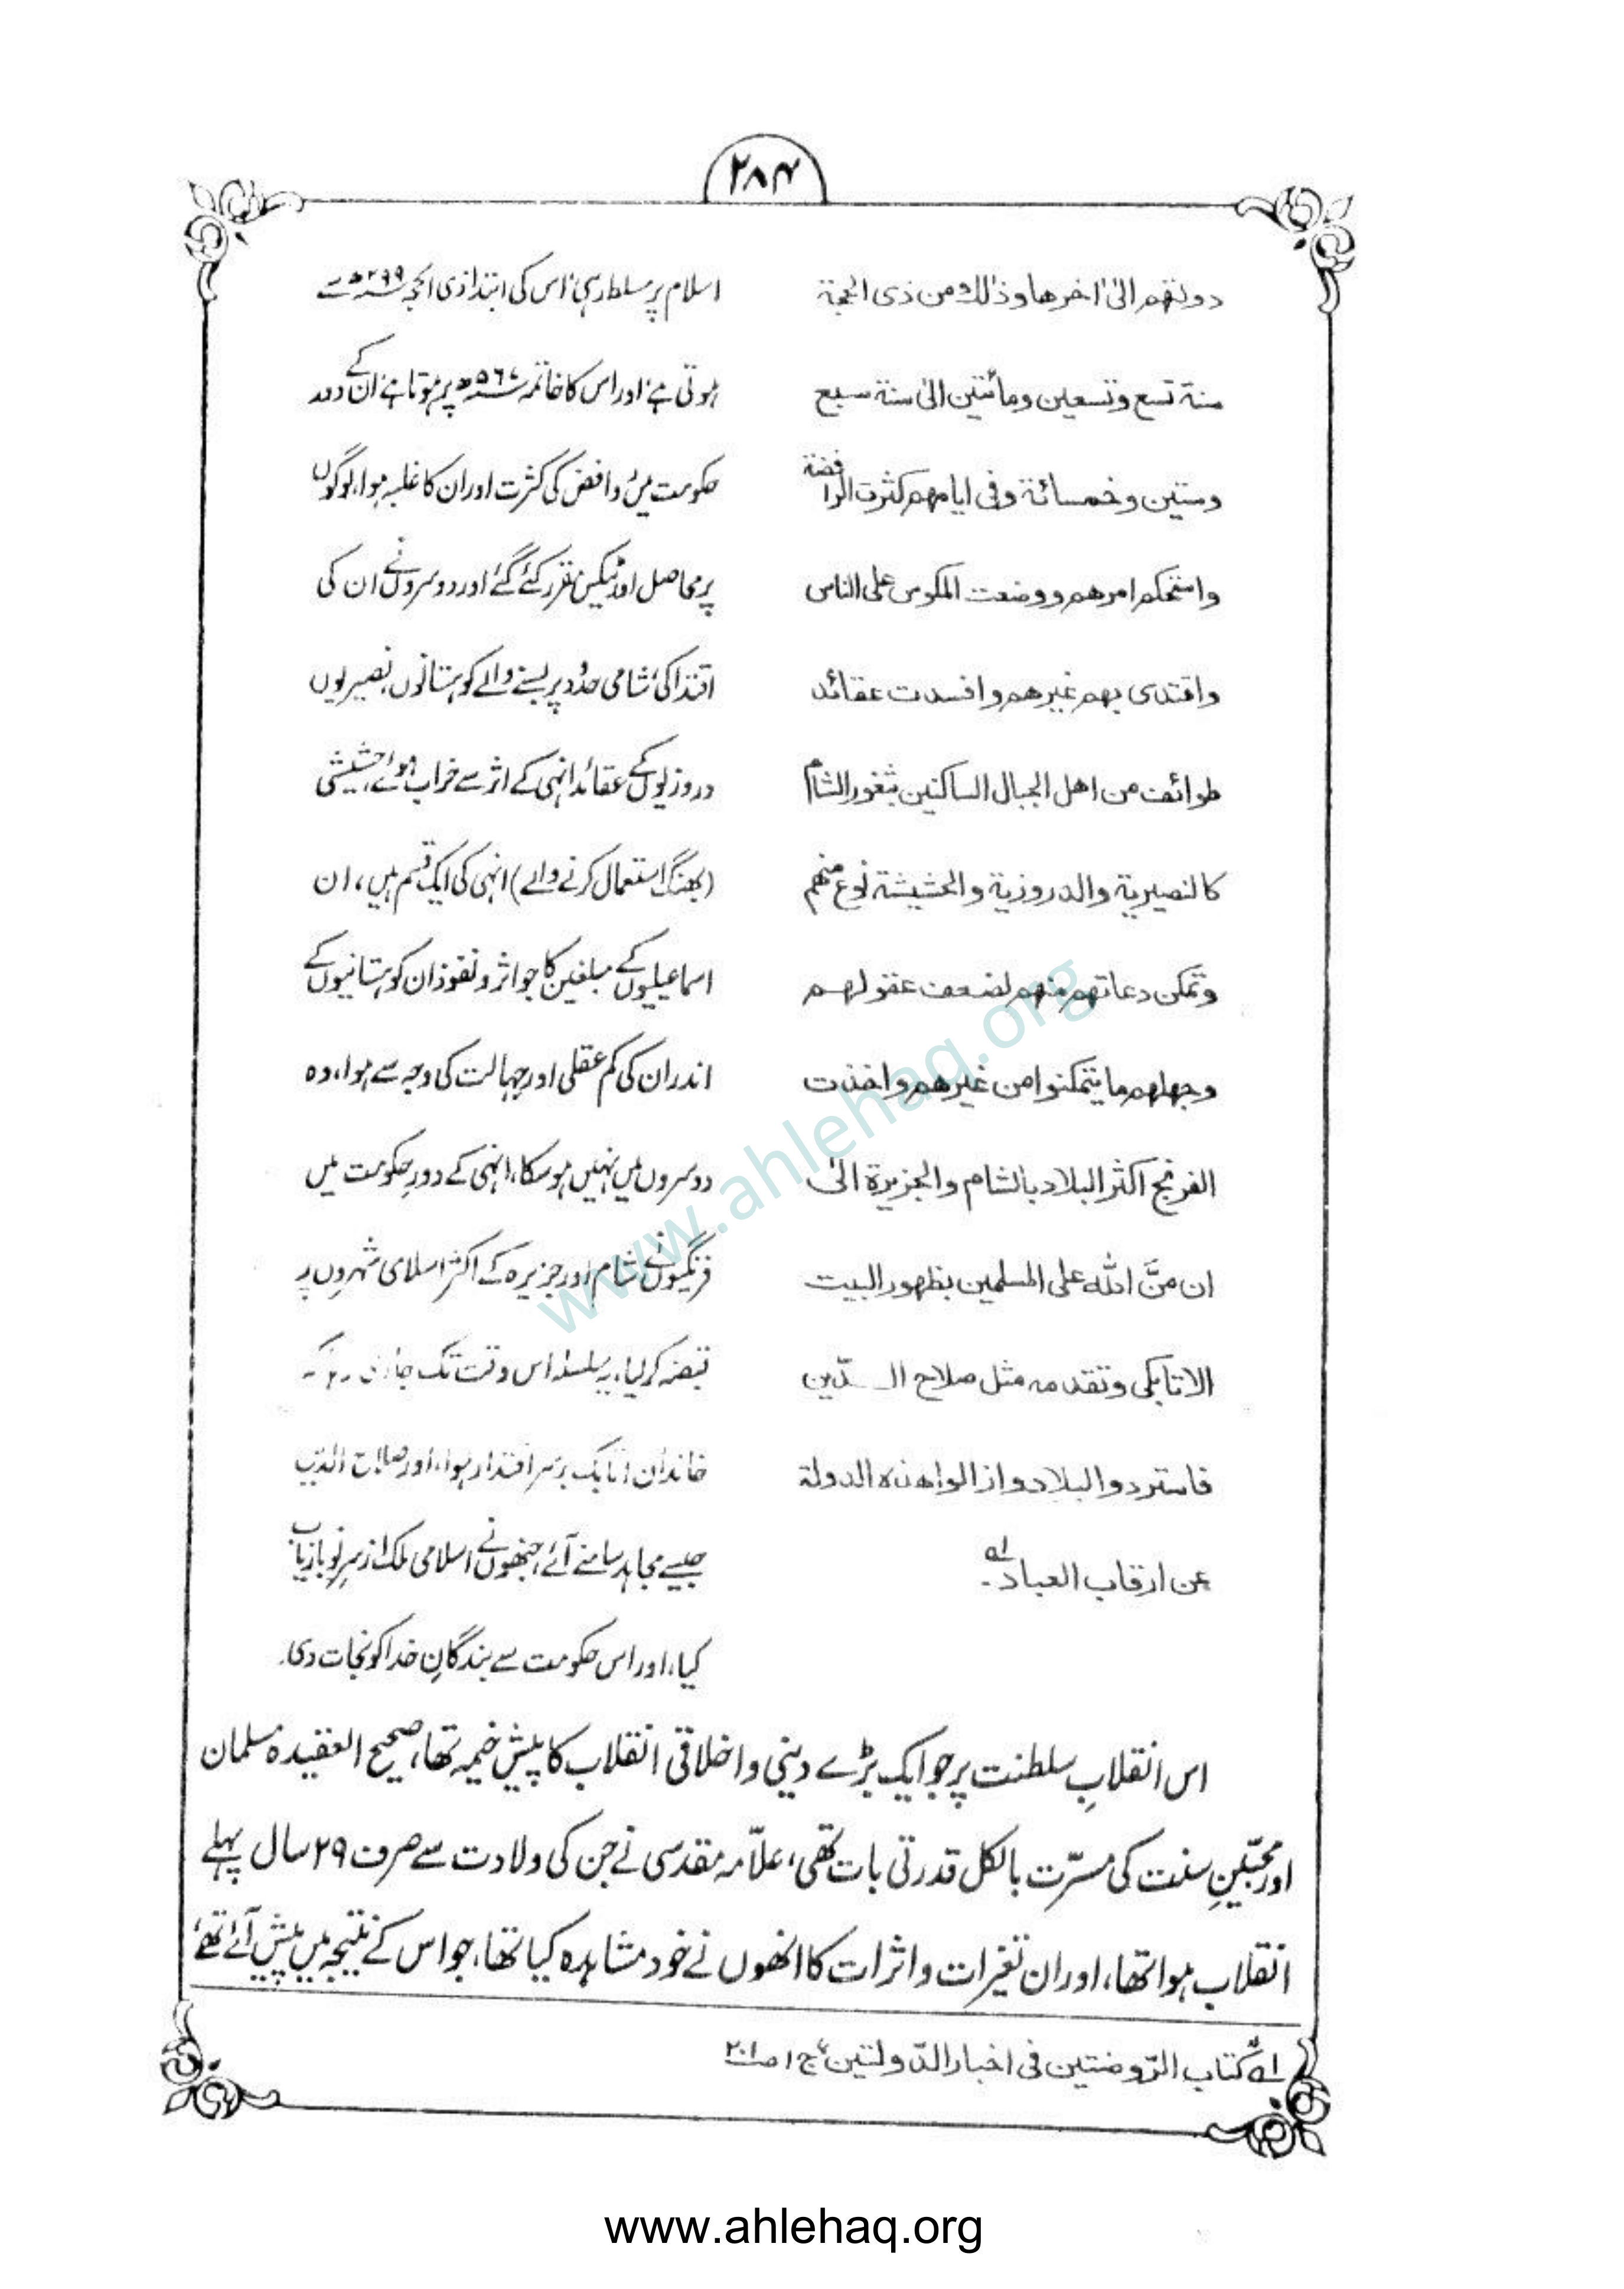 ۲۸۴
دولتهم الیٰ اٰخرها وذٰلك من ذی الحجة
سنة تسع وتسعین ومأتین الیٰ سنة سبع
وستین وخمسائة وفی ایامهم کثرت الرافضة
واستحکم امرهم ووضعت المکوس علی الناس
واقتدی بهم غیرهم وافسدت عقائد
طوائف من اهل الجبال الساکنین بثغور الشام
کالنصیریة والدروزیة والحشیشة نوع منهم
وتمکن دعاتهم منهم لضعف عقولهم
وجهلهم ما یتمکنوا من غیرهم واخذت
الفرنج اکثر البلاد بالشام والجزیرة الیٰ
ان منَّ اللّٰه علی المسلمین بظهور البیت
الاتابکی وتقدمه مثل صلاح الــدّین
فاستردوا البلاد وازالوا هذه الدولة
عن ارقاب العباد۔ لہ
اسلام پر مسلط رہی، اس کی ابتدا ذی الحجہ ۲۹۹ھ سے
ہوتی ہے، اور اس کا خاتمہ ۵۶۷ھ پر ہوتا ہے، ان کے دور
حکومت میں روافض کی کثرت اور ان کا غلبہ ہوا، لوگوں
پر محاصل اور ٹیکس مقرر کئے گئے اور دوسروں نے ان کی
اقتدا کی، شامی حدود پر بسنے والے کوہستانوں نصیریوں
دروزیوں کے عقائد انہی کے اثر سے خراب ہوئے، حشیشی
(بھنگ استعمال کرنے والے) انہی کی ایک قسم ہیں، ان
اسماعیلیوں کے مبلغین کا جو اثر و نفوذ ان کوہستانیوں کے
اندر ان کی کم عقلی اور جہالت کی وجہ سے ہوا، وہ
دوسروں میں نہیں ہوسکا، انہی کے دورِ حکومت میں
فرنگیوں نے شام اور جزیرہ کے اکثر اسلامی شہروں پر
قبضہ کر لیا، یہ سلسلہ اس وقت تک جاری
خاندان اتابک برسر اقتدار ہوا، اور صلاح الدین
جیسے مجاہد سامنے آئے، جنھوں نے اسلامی ملک از سرِ نو بازیاب
کیا، اور اس حکومت سے بندگانِ خدا کو نجات دی۔
اس انقلابِ سلطنت پر جو ایک بڑے دینی و اخلاقی انقلاب کا پیش خیمہ تھا، صحیح العقیدہ مسلمان
اور محبّینِ سنت کی مسرّت بالکل قدرتی بات تھی، علاّمہ مقدسی نے جن کی ولادت سے صرف ۲۹ سال پہلے
انقلاب ہوا تھا، اور ان تغیّرات و اثرات کا انھوں نے خود مشاہدہ کیا تھا، جو اس کے نتیجہ میں پیش آئے تھے،
لہ کتاب الرّوضتین فی اخبار الدّولتین، ج ۱ ص ۲۰۱
www.ahlehaq.org
www.ahlehaq.org